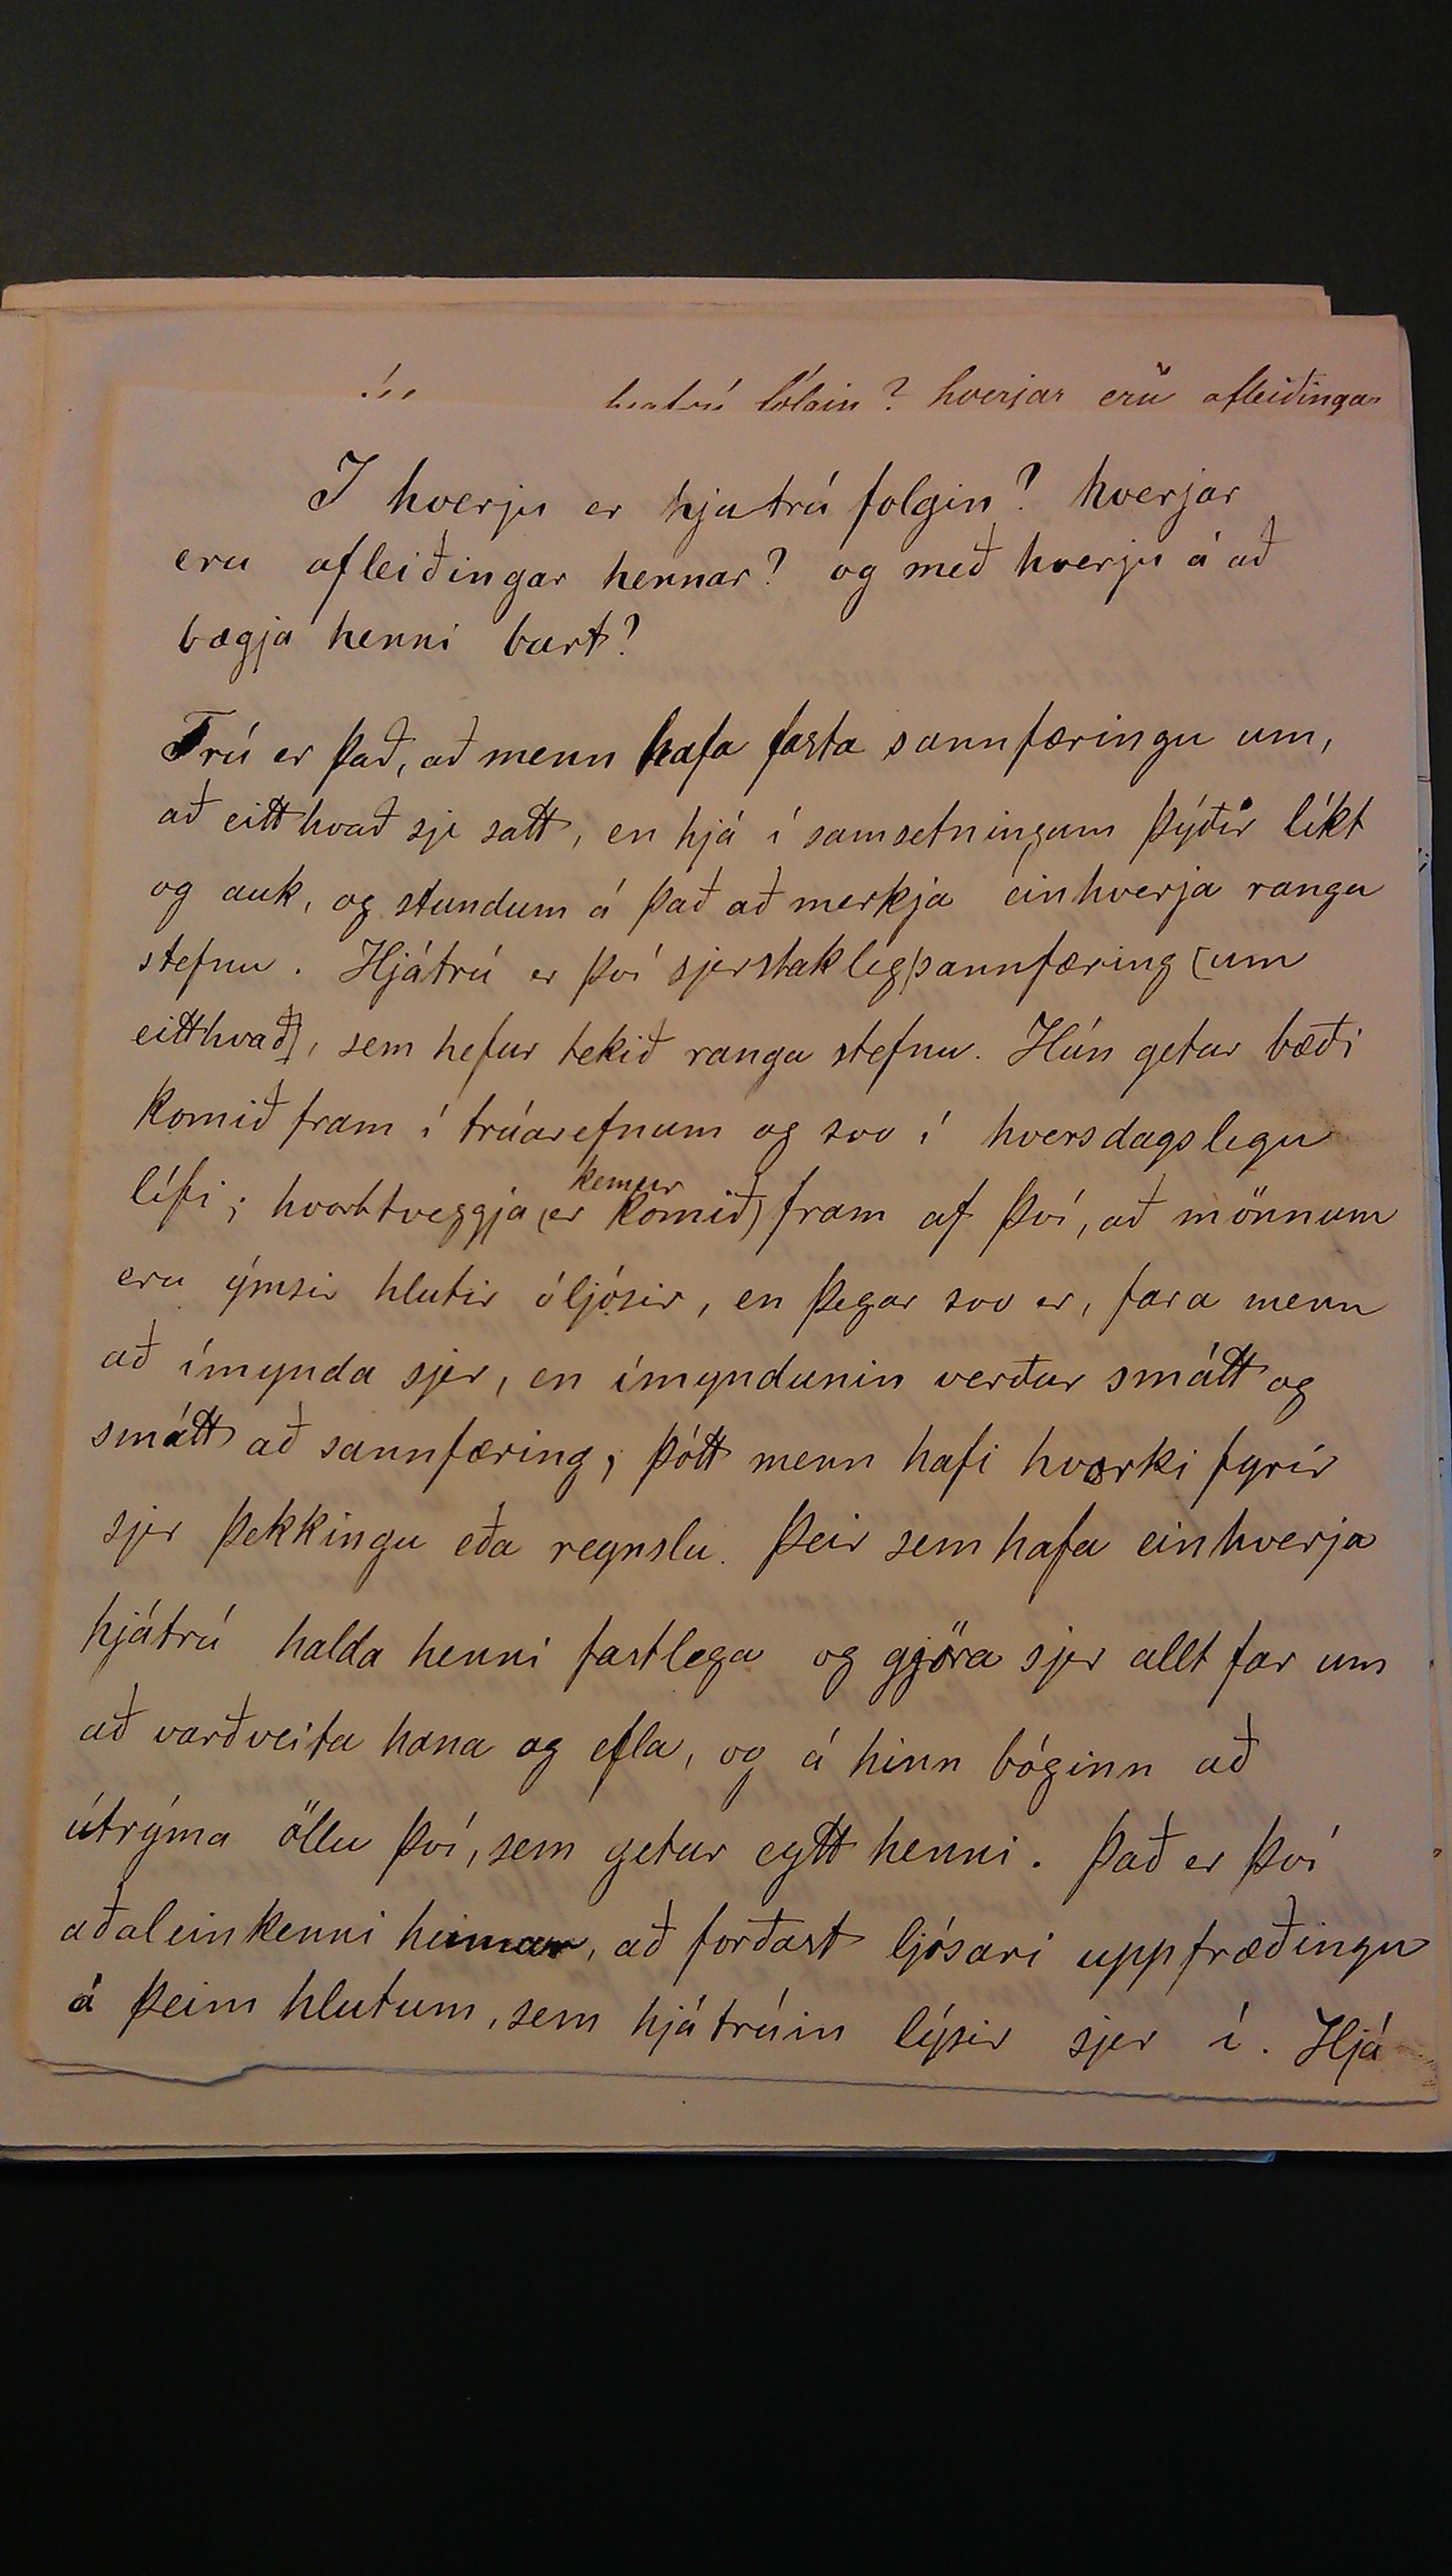 hjatrú fólgin? hverjar eru afleiðingar
I hverju er hjatrú folgin? hverjar
eru afleiðingar hennar? og með hverju á að
bægja henni burt?
Trú er það, að menn hafa fasta sannfæringu um,
að eitthvað sje satt, en hjá í samsetningum þýðir líkt
og auk, og stundum á það að merkja einhverja ranga
stefnu. Hjátrú er því sjerstakleg sannfæring (um
eitthvað), sem hefur tekið ranga stefnu. Hún getur bæði
komið fram í trúarefnum og svo í hversdagslegu
kemur
lífi; hvorttveggja (er komið) fram af því, að mönnum
eru ýmsir hlutir óljósir, en þegar svo er, fara menn
að ímynda sjer, en ímyndunin verður smátt og
smátt að sannfæring, þótt menn hafi hvorki fyrir
sjer þekkingu eða reynslu. Þeir sem hafa einhverja
hjátrú halda henni fastlega og gjöra sjer allt far um
að varðveita hana og efla, og á hinn bóginn að
útrýma öllu því, sem getur eytt henni. Það er því
aðaleinkenni hennar, að forðast ljósari uppfræðingu
á þeim hlutum, sem hjátrúin lýsir sjer í. Hjá